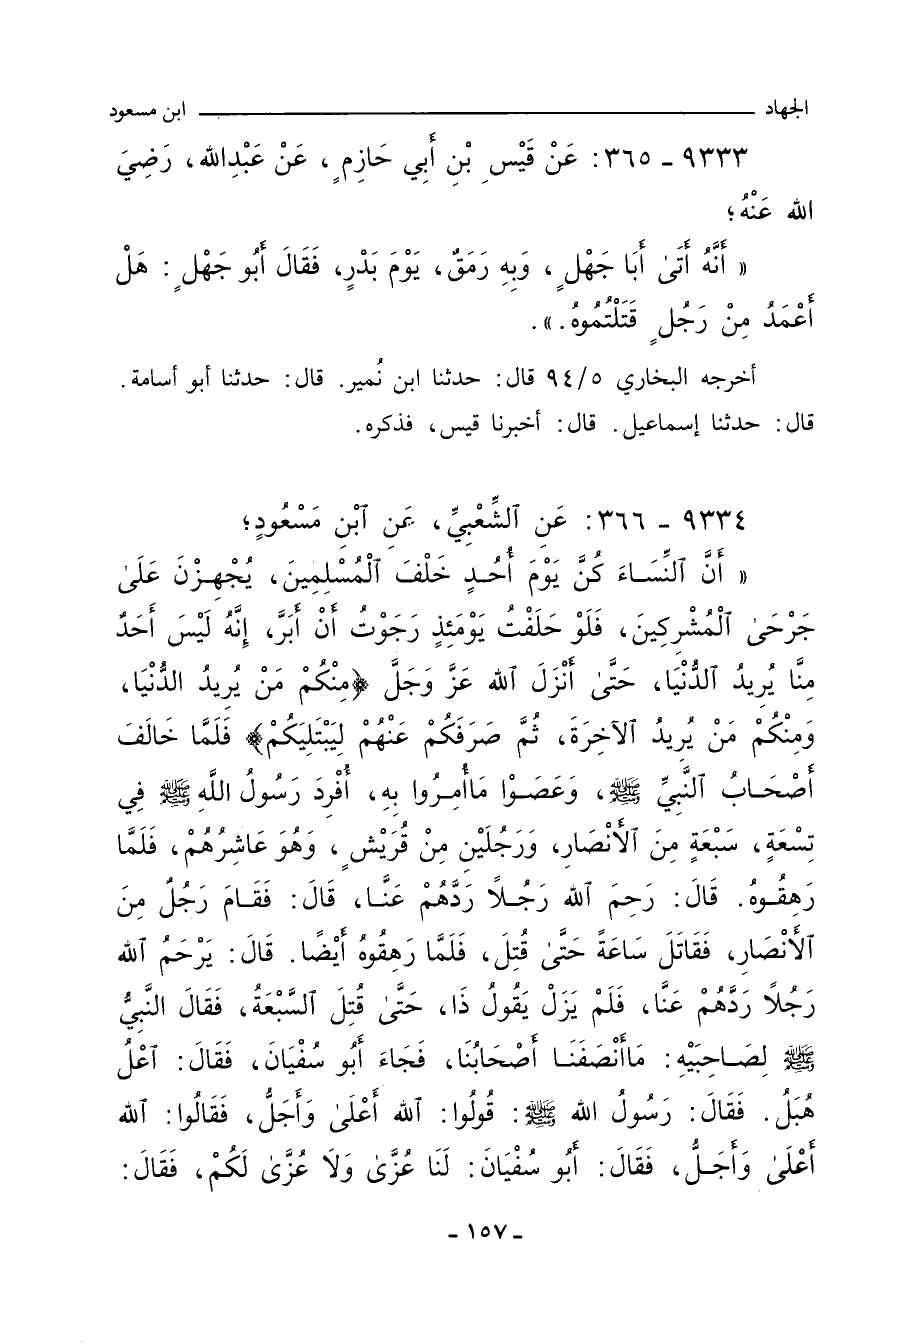 الجهاد ــــــــــــــــــــ ابن مسعود
٩٣٣٣ ـ ٣٦٥: عَنْ قَيْسِ بْنِ أَبِي حَازِمٍ، عَنْ عَبْدِالله، رَضِيَ
الله عَنْهُ؛
« أَنَّهُ أَتَىٰ أَبَا جَهْلٍ، وَبِهِ رَمَقٌ، يَوْمَ بَدْرٍ، فَقَالَ أَبُو جَهْلٍ: هَلْ
أَعْمَدُ مِنْ رَجُلٍ قَتَلْتُمُوهُ.».
أخرجه البخاري ٩٤/٥ قال: حدثنا ابن نُمير. قال: حدثنا أبو أسامة.
قال: حدثنا إسماعيل. قال: أخبرنا قيس، فذكره.
٩٣٣٤ ـ ٣٦٦: عَنِ ٱلشِّعْبِيِّ، عَنِ ٱبْنِ مَسْعُودٍ؛
« أَنَّ ٱلنِّسَاءَ كُنَّ يَوْمَ أُحُدٍ خَلْفَ ٱلْمُسْلِمِينَ، يُجْهِزْنَ عَلَىٰ
جَرْحَىٰ ٱلْمُشْرِكِينَ، فَلَوْ حَلَفْتُ يَوْمَئِذٍ رَجَوْتُ أَنْ أَبَرَّ، إِنَّهُ لَيْسَ أَحَدٌ
مِنَّا يُرِيدُ ٱلدُّنْيَا، حَتَّىٰ أَنْزَلَ ٱلله عَزَّ وَجَلَّ ﴿مِنْكُمْ مَنْ يُرِيدُ الدُّنْيَا،
وَمِنْكُمْ مَنْ يُرِيدُ ٱلآخِرَةَ، ثُمَّ صَرَفَكُمْ عَنْهُمْ لِيَبْتَلِيَكُمْ﴾ فَلَمَّا خَالَفَ
أَصْحَابُ ٱلنَّبِيِّ ﷺ، وَعَصَوْا مَاأُمِرُوا بِهِ، أُفْرِدَ رَسُولُ اللَّهِ ﷺ فِي
تِسْعَةٍ، سَبْعَةٍ مِنَ ٱلأَنْصَارِ، وَرَجُلَيْنِ مِنْ قُرَيْشٍ، وَهُوَ عَاشِرُهُمْ، فَلَمَّا
رَهِقُوهُ. قَالَ: رَحِمَ ٱلله رَجُلاً رَدَّهُمْ عَنَّا، قَالَ: فَقَامَ رَجُلٌ مِنَ
ٱلأَنْصَارِ، فَقَاتَلَ سَاعَةً حَتَّىٰ قُتِلَ، فَلَمَّا رَهِقُوهُ أَيْضًا. قَالَ: يَرْحَمُ ٱلله
رَجُلاً رَدَّهُمْ عَنَّا، فَلَمْ يَزَلْ يَقُولُ ذَا، حَتَّىٰ قُتِلَ ٱلسَّبْعَةُ، فَقَالَ النَّبِيُّ
ﷺ لِصَاحِبَيْهِ: مَاأَنْصَفَنَا أَصْحَابُنَا، فَجَاءَ أَبُو سُفْيَانَ، فَقَالَ: ٱعْلُ
هُبَلُ. فَقَالَ: رَسُولُ الله ﷺ: قُولُوا: ٱلله أَعْلَىٰ وَأَجَلُّ، فَقَالُوا: ٱلله
أَعْلَىٰ وَأَجَلُّ، فَقَالَ: أَبُو سُفْيَانَ: لَنَا عُزَّىٰ وَلَا عُزَّىٰ لَكُمْ، فَقَالَ:
ـ ١٥٧ ـ